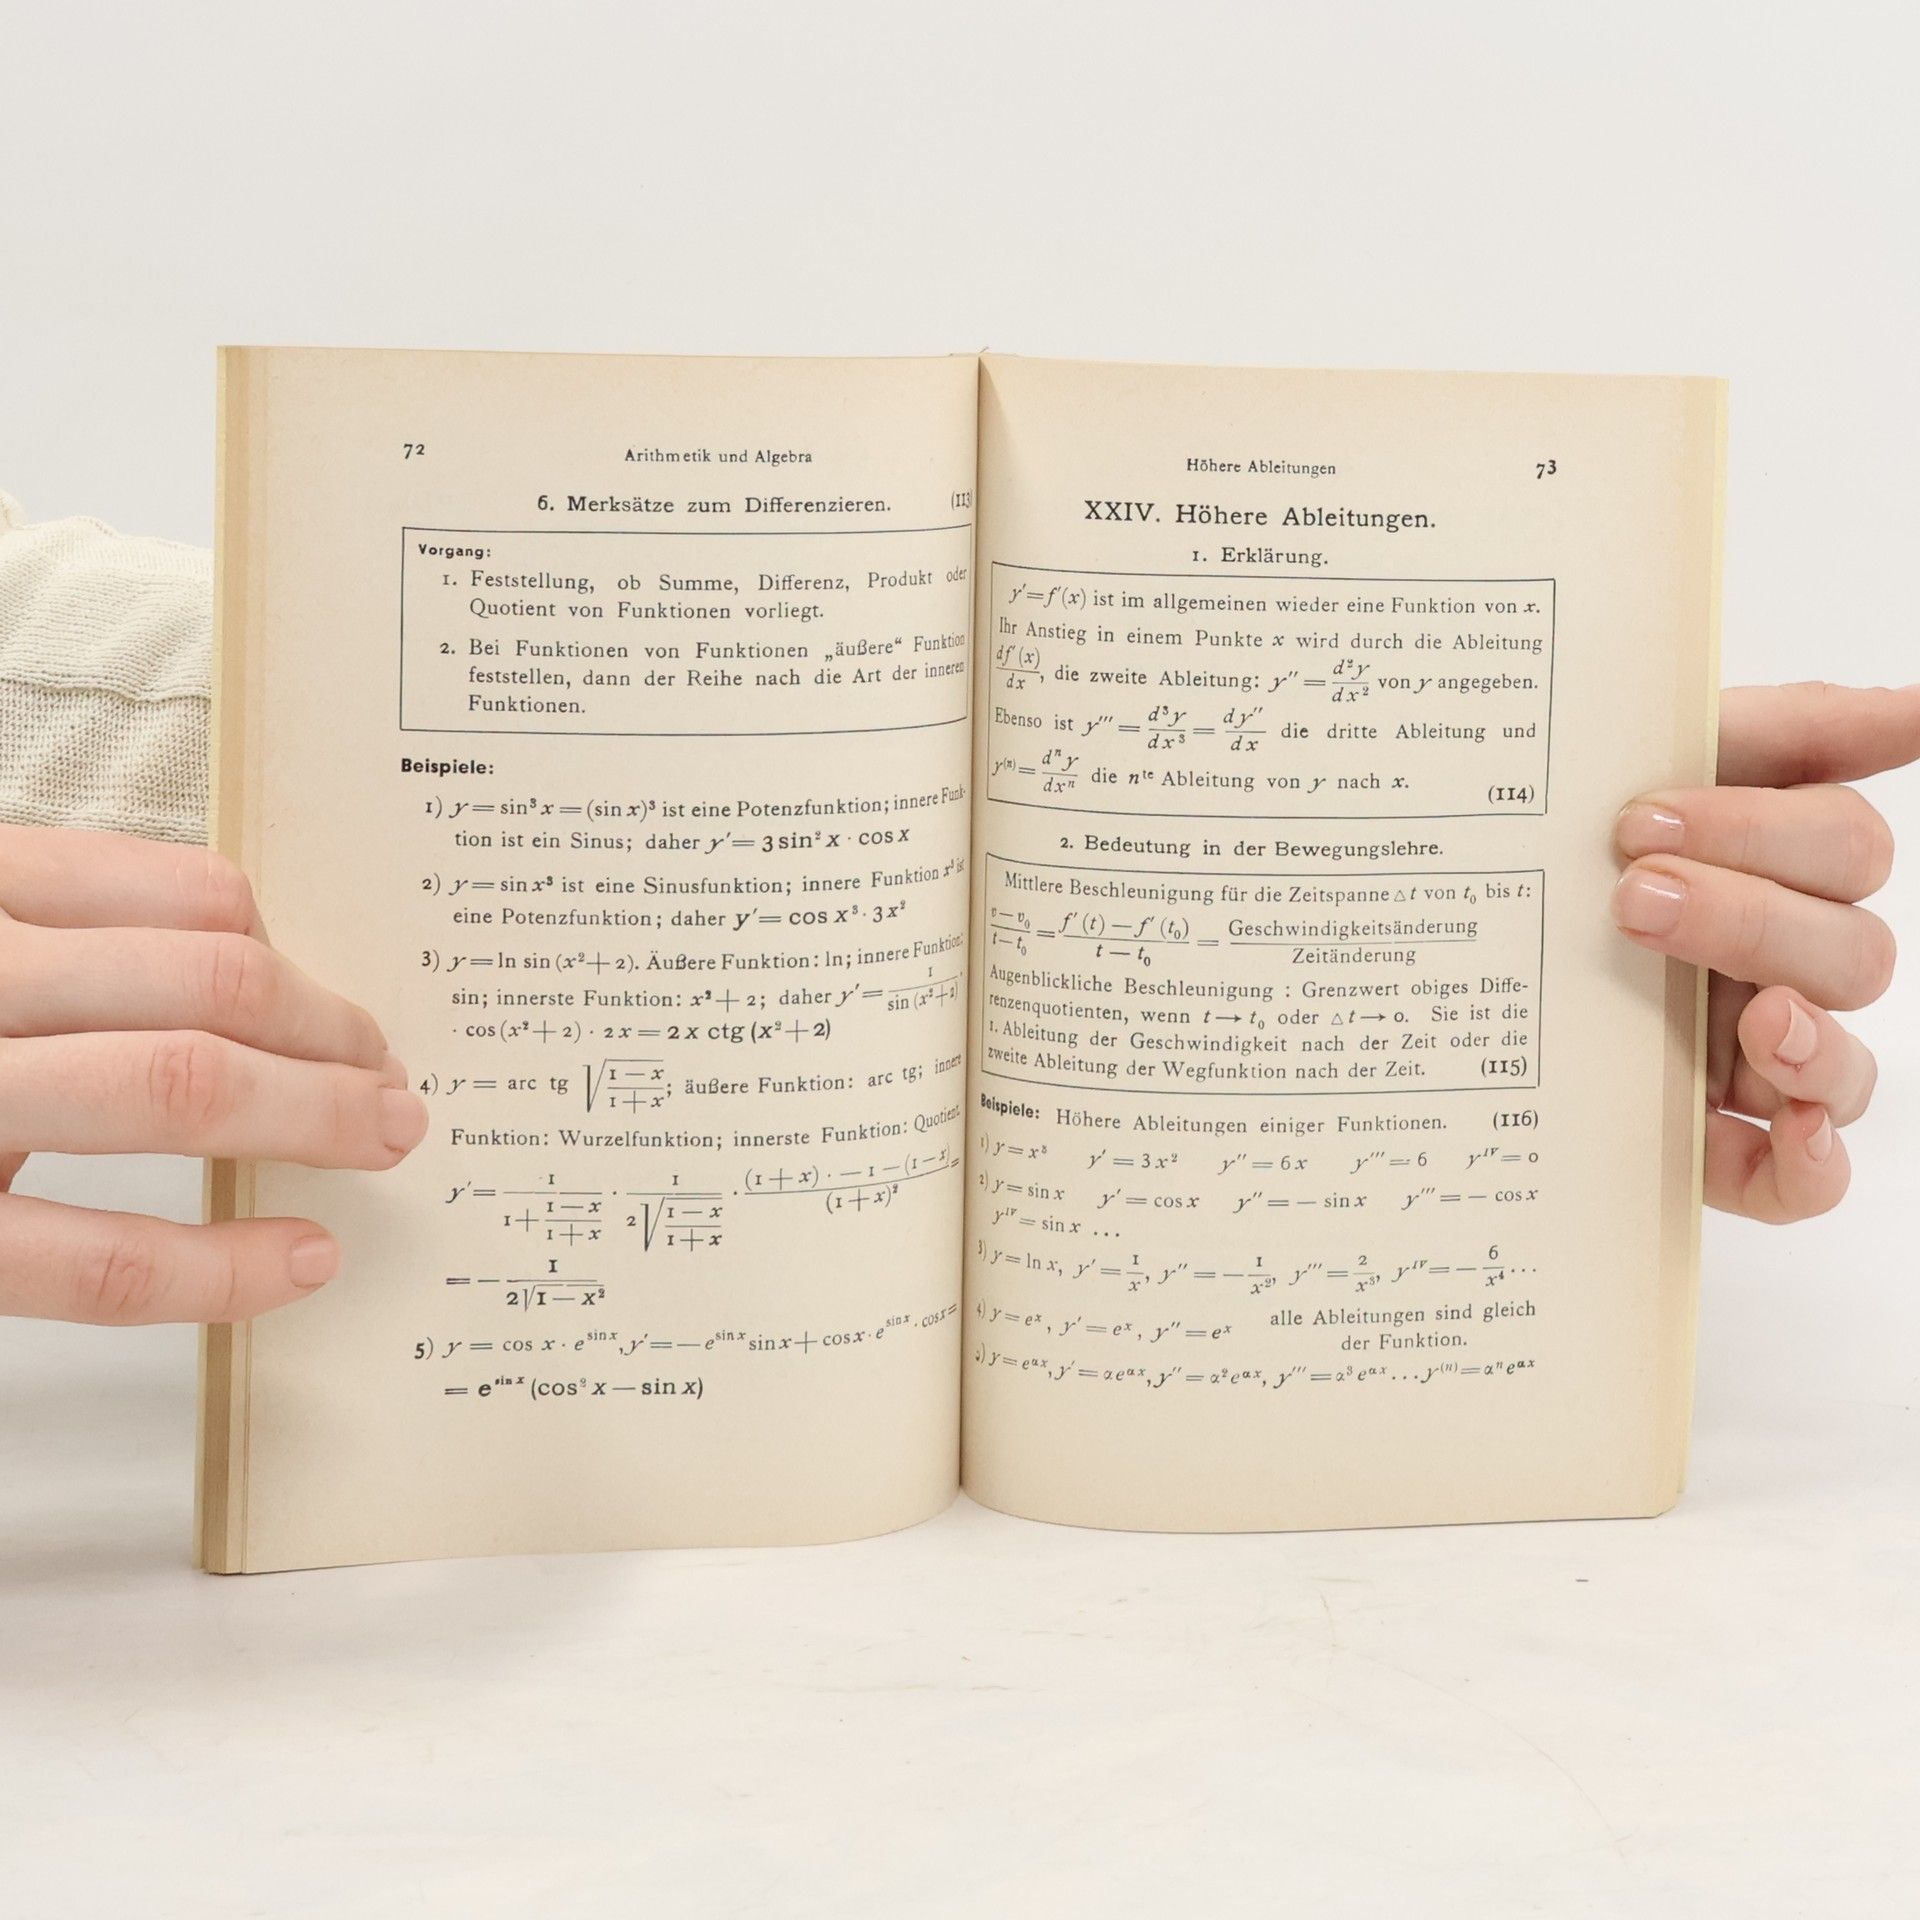 72
Arithmetik und Algebra
6. Merksätze zum Differenzieren. (113)
Vorgang:
1. Feststellung, ob Summe, Differenz, Produkt oder
Quotient von Funktionen vorliegt.
2. Bei Funktionen von Funktionen „äußere“ Funktion
feststellen, dann der Reihe nach die Art der inneren
Funktionen.
Beispiele:
1) y = sin³ x = (sin x)³ ist eine Potenzfunktion; innere Funk-
tion ist ein Sinus; daher y′ = 3 sin² x · cos x
2) y = sin x³ ist eine Sinusfunktion; innere Funktion x³ ist
eine Potenzfunktion; daher y′ = cos x³ · 3 x²
3) y = ln sin (x² + 2). Äußere Funktion: ln; innere Funktion:
sin; innerste Funktion: x² + 2; daher y′ = 1/sin (x² + 2) ·
· cos (x² + 2) · 2 x = 2 x ctg (x² + 2)
4) y = arc tg √((1 − x)/(1 + x)); äußere Funktion: arc tg; innere
Funktion: Wurzelfunktion; innerste Funktion: Quotient.
y′ = 1/(1 + (1 − x)/(1 + x)) · 1/(2 √((1 − x)/(1 + x))) · ((1 + x) · − 1 − (1 − x))/(1 + x)² =
= − 1/(2 √(1 − x²))
5) y = cos x · e^(sin x), y′ = − e^(sin x) sin x + cos x · e^(sin x) · cos x =
= e^(sin x) (cos² x − sin x)
Höhere Ableitungen
73
XXIV. Höhere Ableitungen.
1. Erklärung.
y′ = f′(x) ist im allgemeinen wieder eine Funktion von x.
Ihr Anstieg in einem Punkte x wird durch die Ableitung
df′(x)/dx, die zweite Ableitung: y″ = d²y/dx² von y angegeben.
Ebenso ist y‴ = d³y/dx³ = dy″/dx die dritte Ableitung und
y⁽ⁿ⁾ = dⁿy/dxⁿ die nᵗᵉ Ableitung von y nach x.
(114)
2. Bedeutung in der Bewegungslehre.
Mittlere Beschleunigung für die Zeitspanne △t von t₀ bis t:
(v − v₀)/(t − t₀) = (f′(t) − f′(t₀))/(t − t₀) = Geschwindigkeitsänderung/Zeitänderung
Augenblickliche Beschleunigung : Grenzwert obiges Diffe-
renzenquotienten, wenn t → t₀ oder △t → 0. Sie ist die
1. Ableitung der Geschwindigkeit nach der Zeit oder die
zweite Ableitung der Wegfunktion nach der Zeit. (115)
Beispiele: Höhere Ableitungen einiger Funktionen. (116)
1) y = x³ y′ = 3 x² y″ = 6 x y‴ = 6 yᴵⱽ = 0
2) y = sin x y′ = cos x y″ = − sin x y‴ = − cos x
yᴵⱽ = sin x ...
3) y = ln x, y′ = 1/x, y″ = − 1/x², y‴ = 2/x³, yᴵⱽ = − 6/x⁴ ...
4) y = eˣ, y′ = eˣ, y″ = eˣ alle Ableitungen sind gleich
der Funktion.
5) y = e^(αx), y′ = α e^(αx), y″ = α² e^(αx), y‴ = α³ e^(αx) ... y⁽ⁿ⁾ = αⁿ e^(αx)